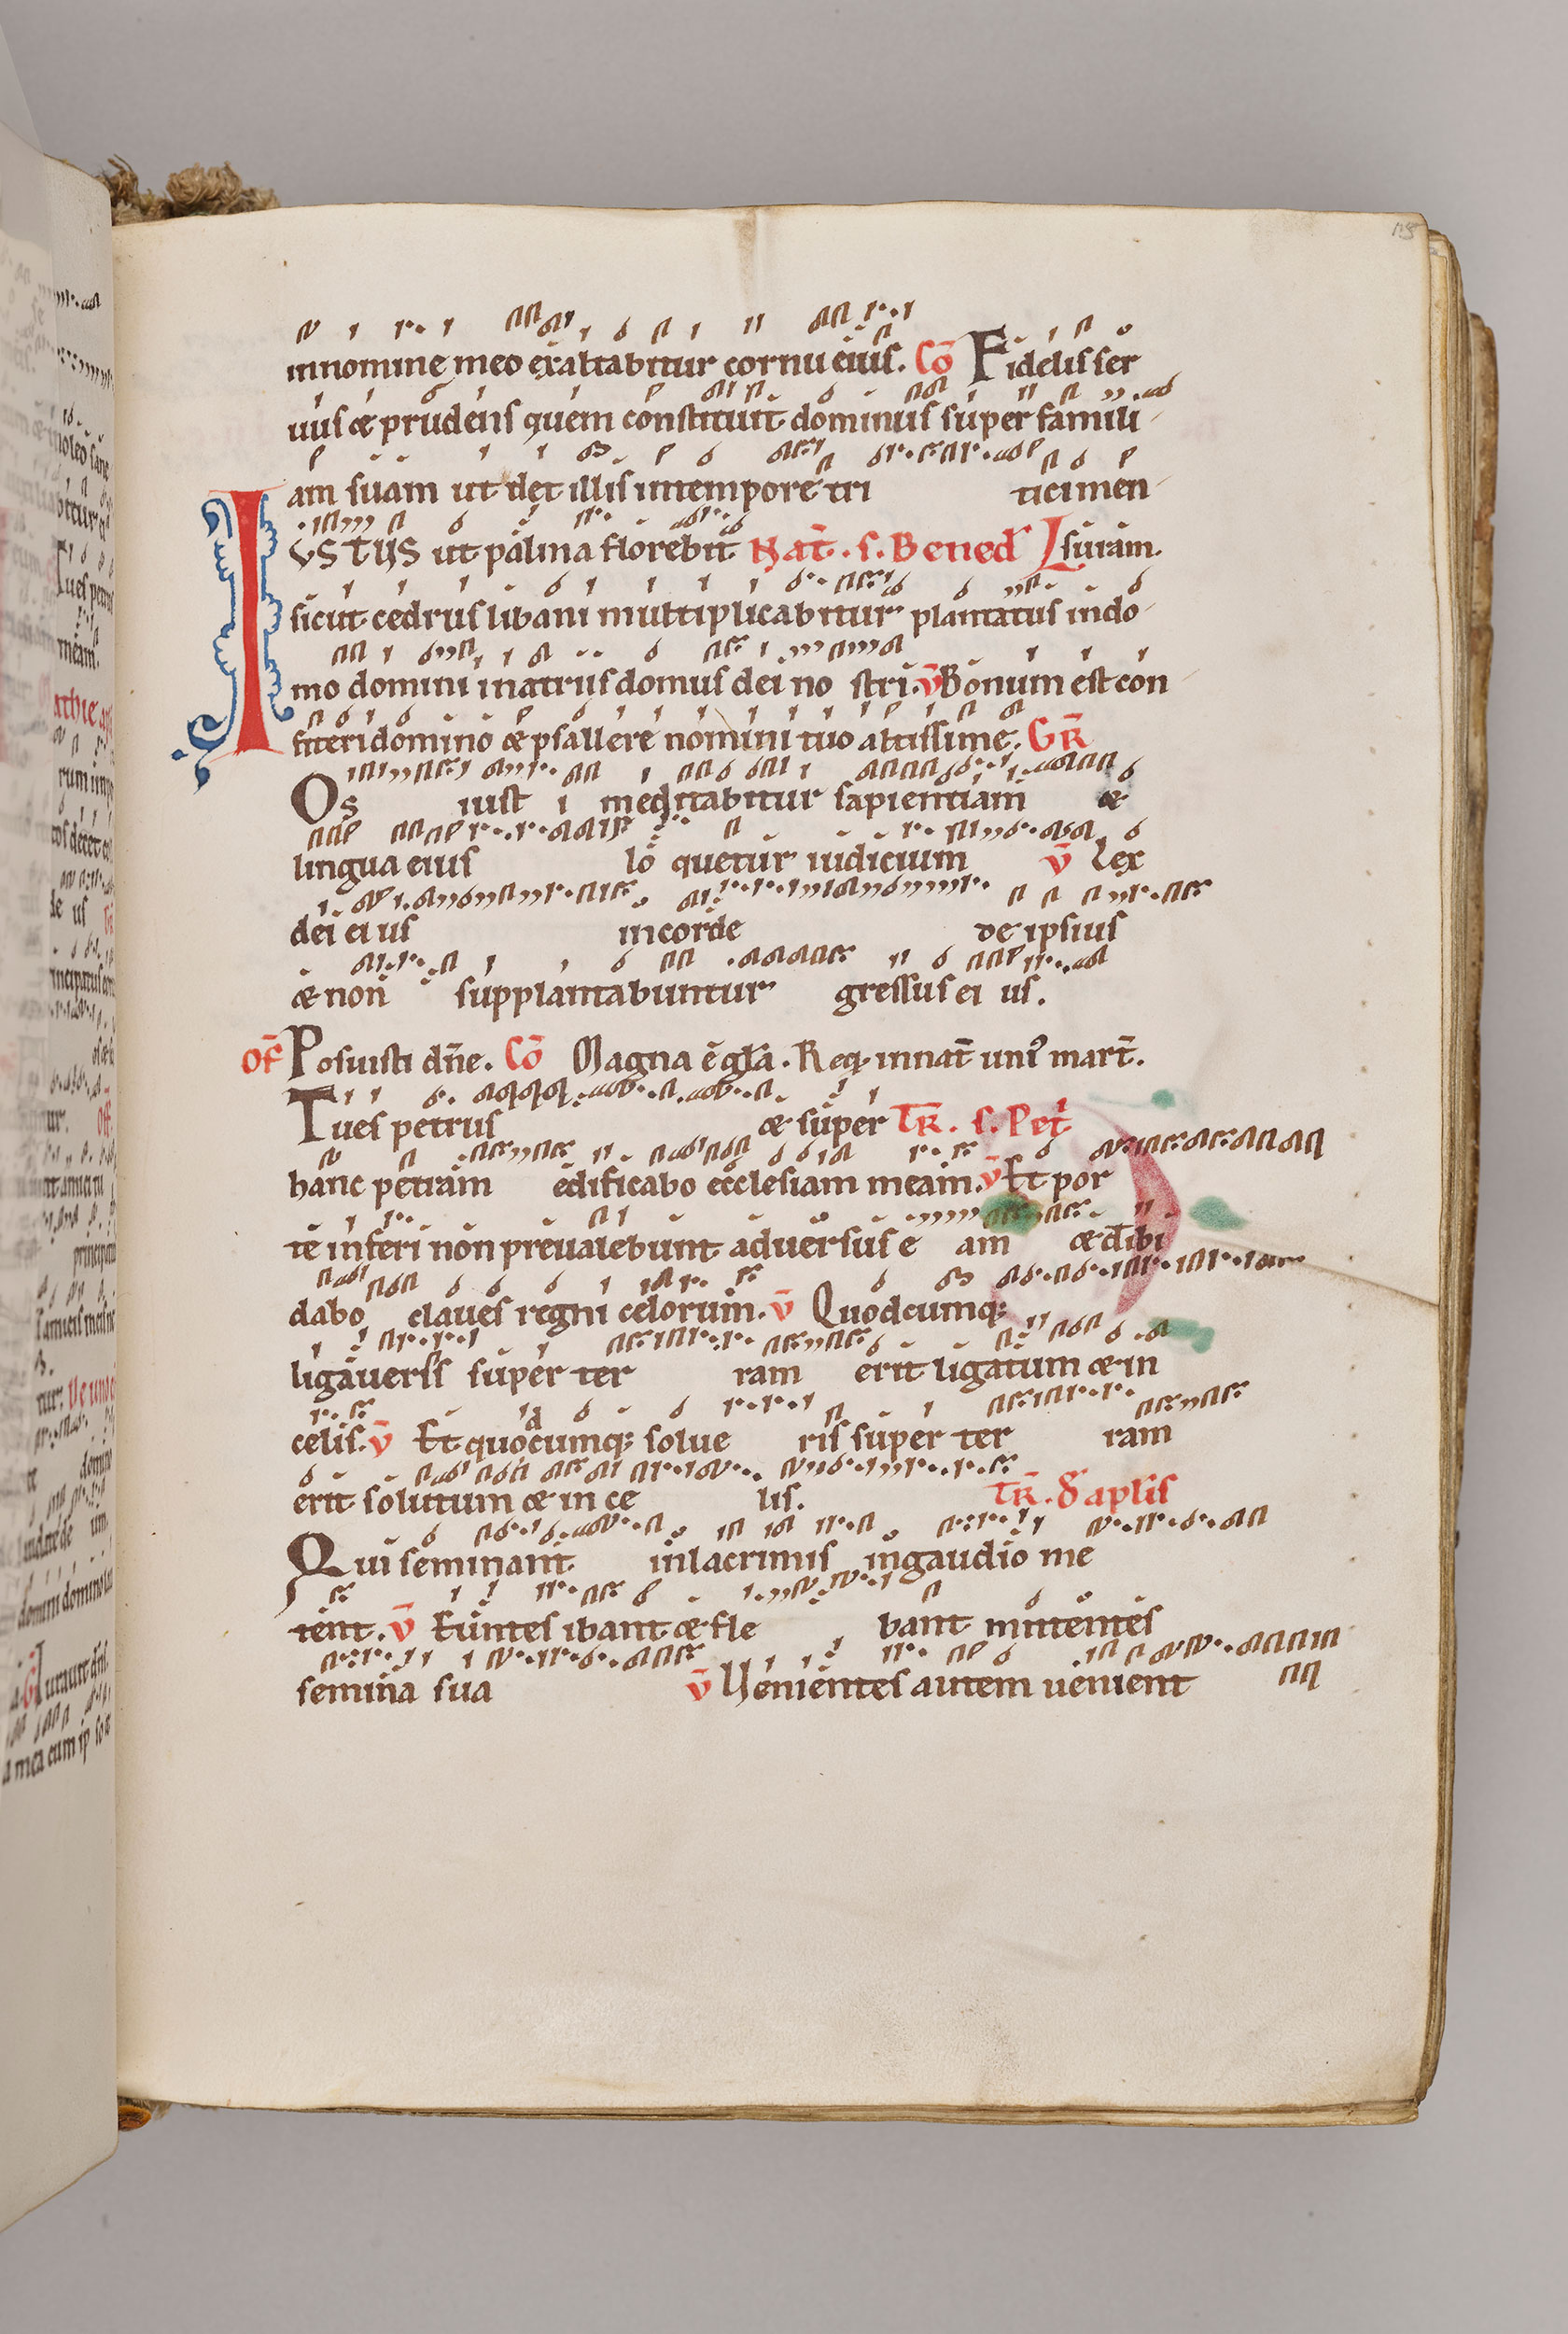 in nomine meo exaltabitur cornu eius. Co Fidelis ser
uus & prudens quem constituit dominus super famili
am suam ut det illis in tempore tri tici men
IVSTUS ut palma florebit Nat. s. Bened suram.
sicut cedrus libani multiplicabitur plantatus in do
mo domini in atriis domus dei no stri. V Bonum est con
fiteri domino & psallere nomini tuo altissime. GR
Os iust i meditabitur sapientiam &
lingua eius lo quetur iudicium V Lex
dei ei us in corde de ipsius
& non supplantabuntur gressus ei us.
Of Posuisti dñe. Co Magna ē glā. Req in nat uni mart.
Tu es petrus & super TR. s. Pet
hanc petram edificabo ecclesiam meam. V Et por
te inferi non preualebunt aduersus e am & tibi
dabo claues regni celorum. V Quodcumq;
ligaueris super ter ram erit ligatum & in
celis. V Et quodcumq; solue ris super ter ram
erit solutum & in ce lis. TR. d aplis
Qui seminant in lacrimis in gaudio me
tent. V Euntes ibant & fle bant mittentes
semina sua V Uenientes autem uenient